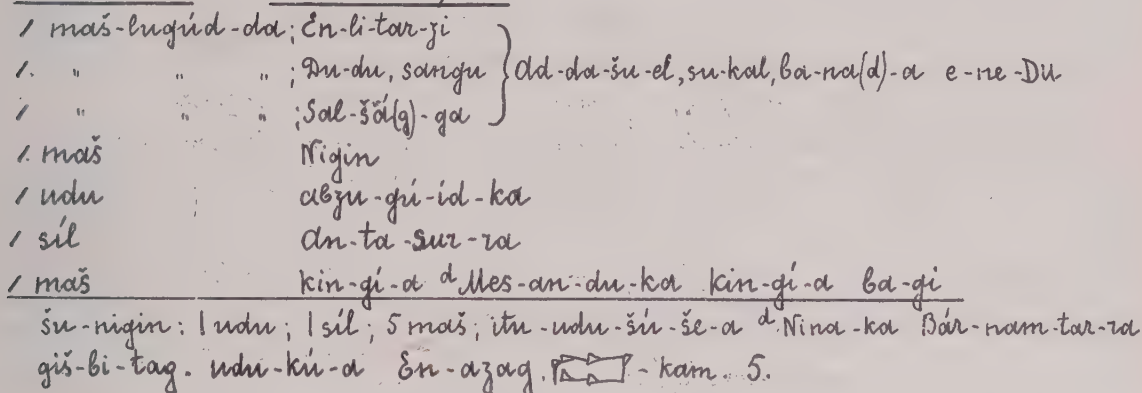 1 maš-lugúd-da; Én-li-tar-zi
1. " " " ; Du-du, sangu } ad-da-šu-el, su-kal, ba-na(d)-a e-ne-DU
1 " " " ; Sal-šá(g)-ga
1. maš Nigin
1 udu abzu-gú-íd-ka
1 síl an-ta-sur-ra
1 maš kin-gí-a ᵈMes-an-du-ka kin-gí-a ba-gi
šu-nigin: 1 udu; 1 síl; 5 maš; itu-udu-šú-še-a ᵈNina-ka Bár-nam-tar-ra
giš-bi-tag. udu-kú-a En-azag. -kam. 5.